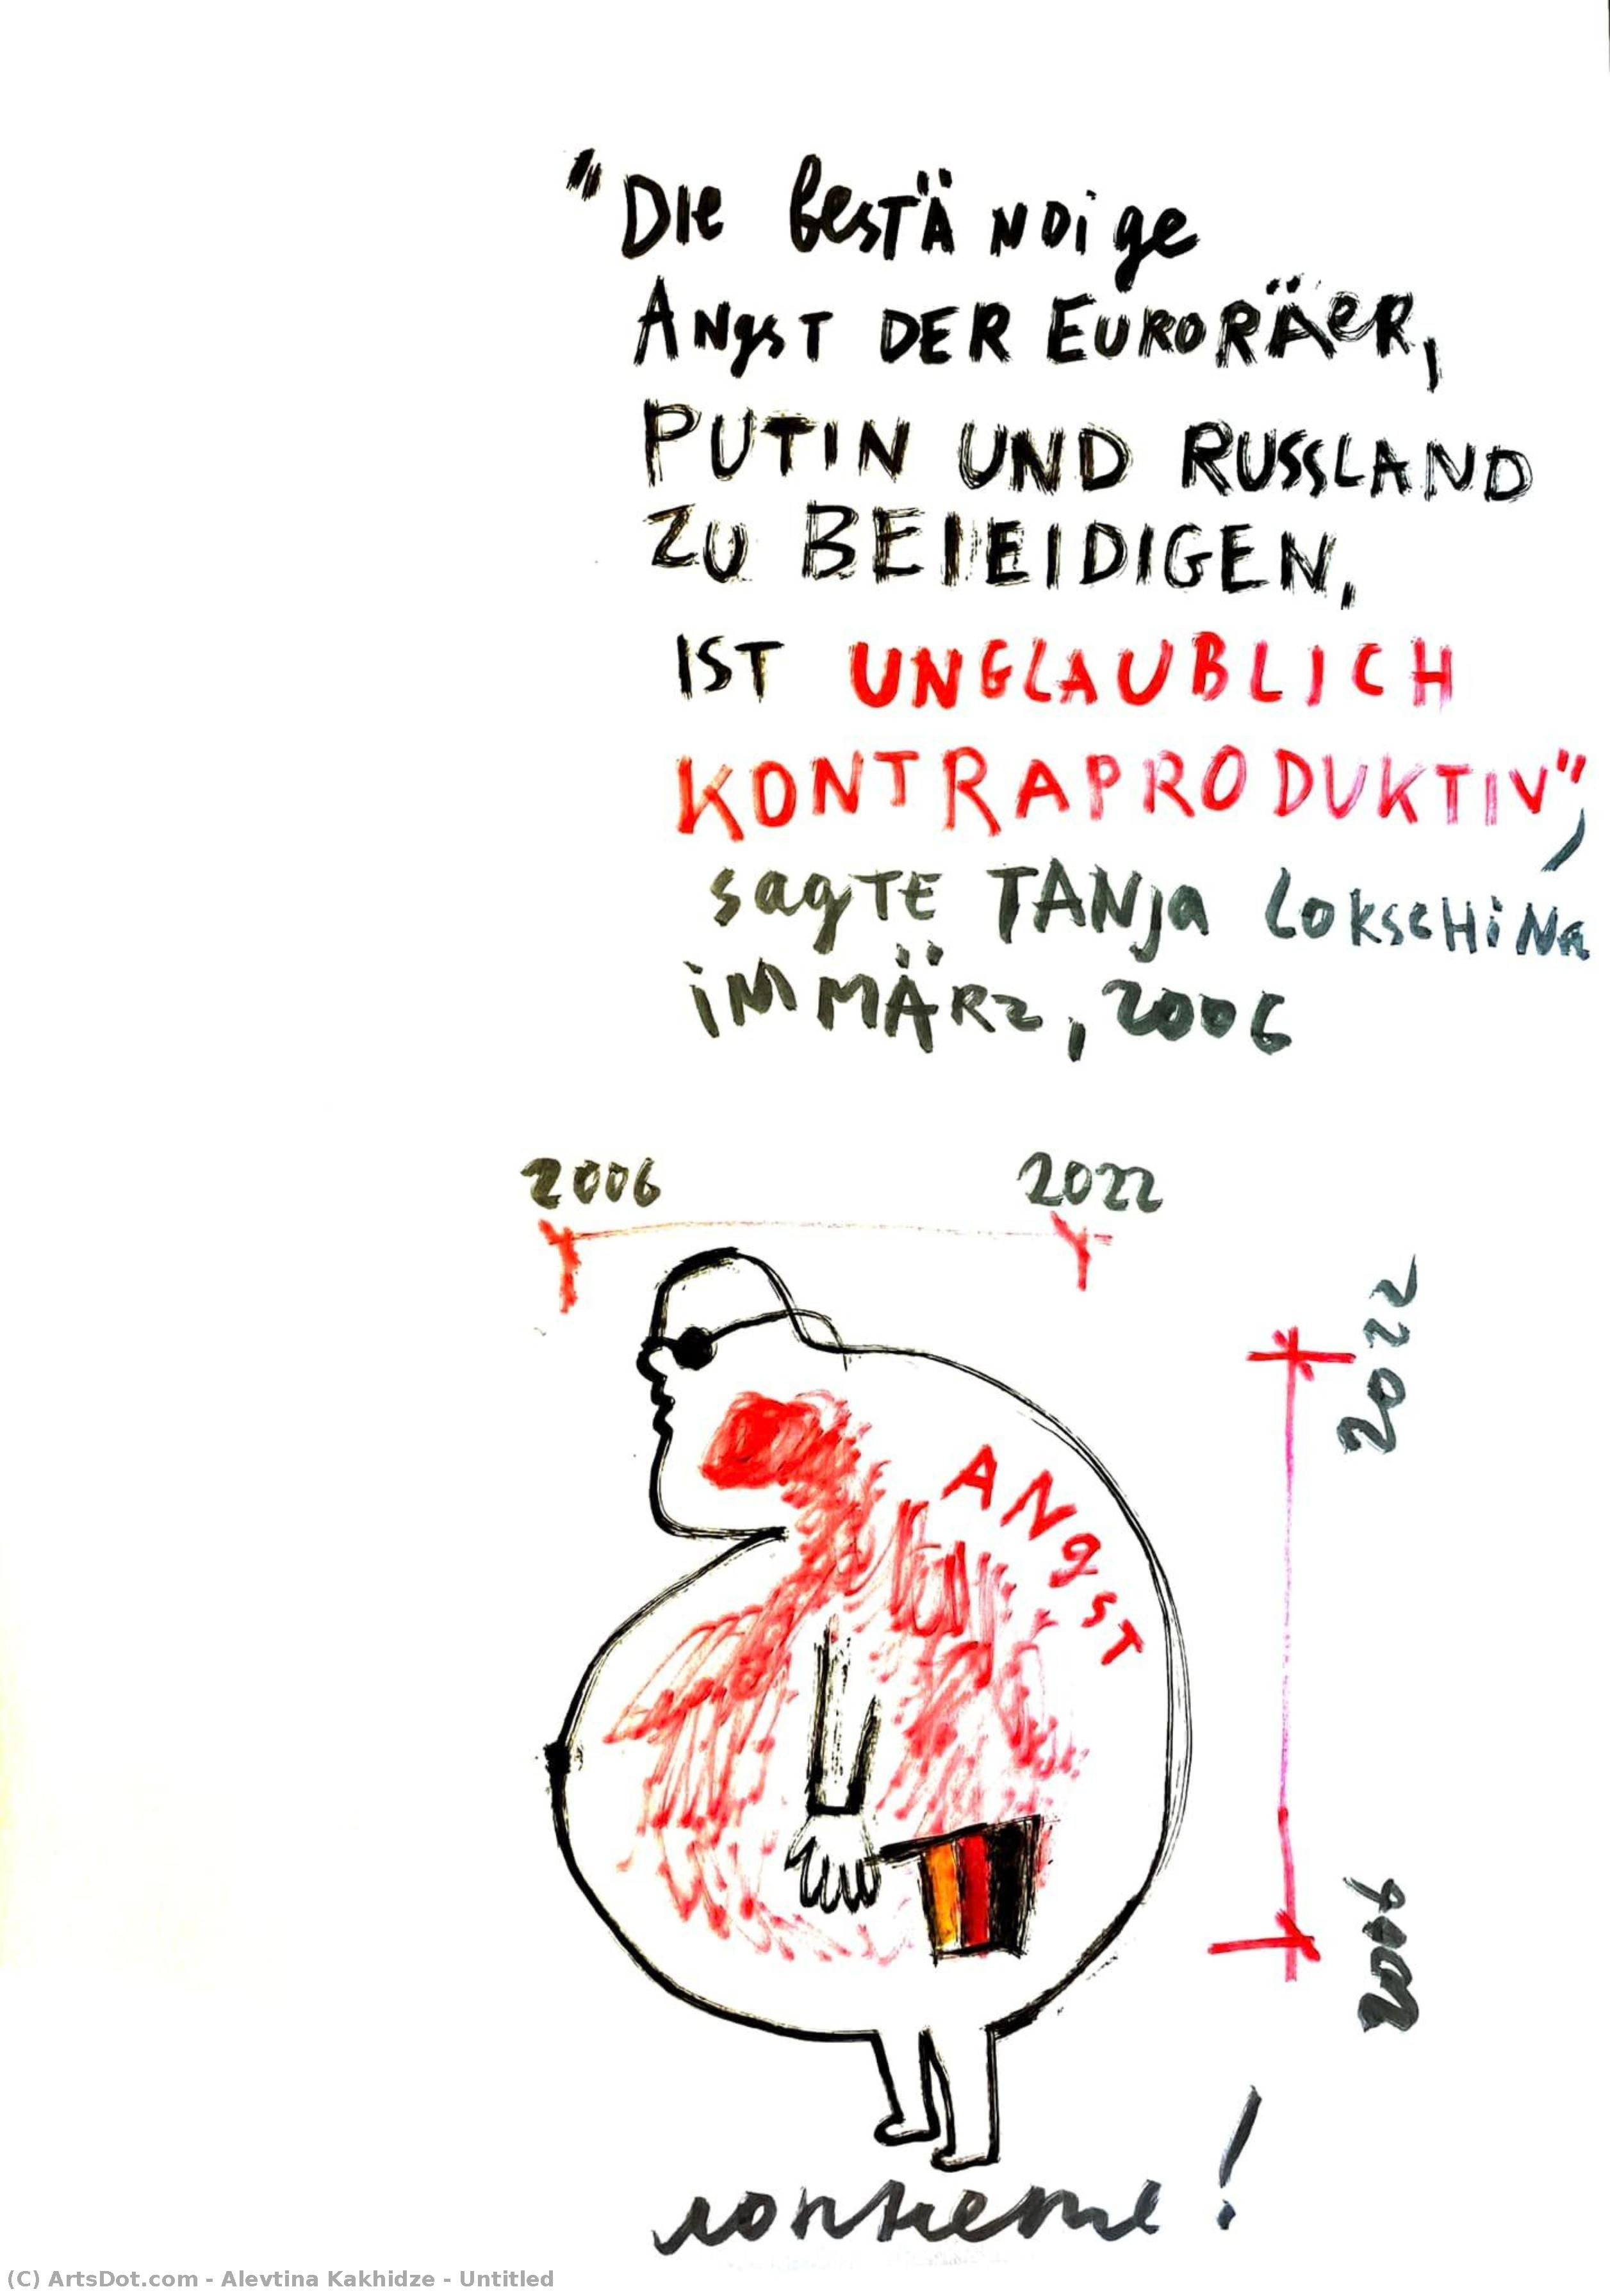 "Die beständige
Angst der Euroräer,
Putin und Russland
zu beieidigen,
ist unglaublich
kontraproduktiv",
sagte Tanja Lokschina
im März, 2006
2006 2022
2022
Angst
2006
лопнете!
(C) ArtsDot.com - Alevtina Kakhidze - Untitled